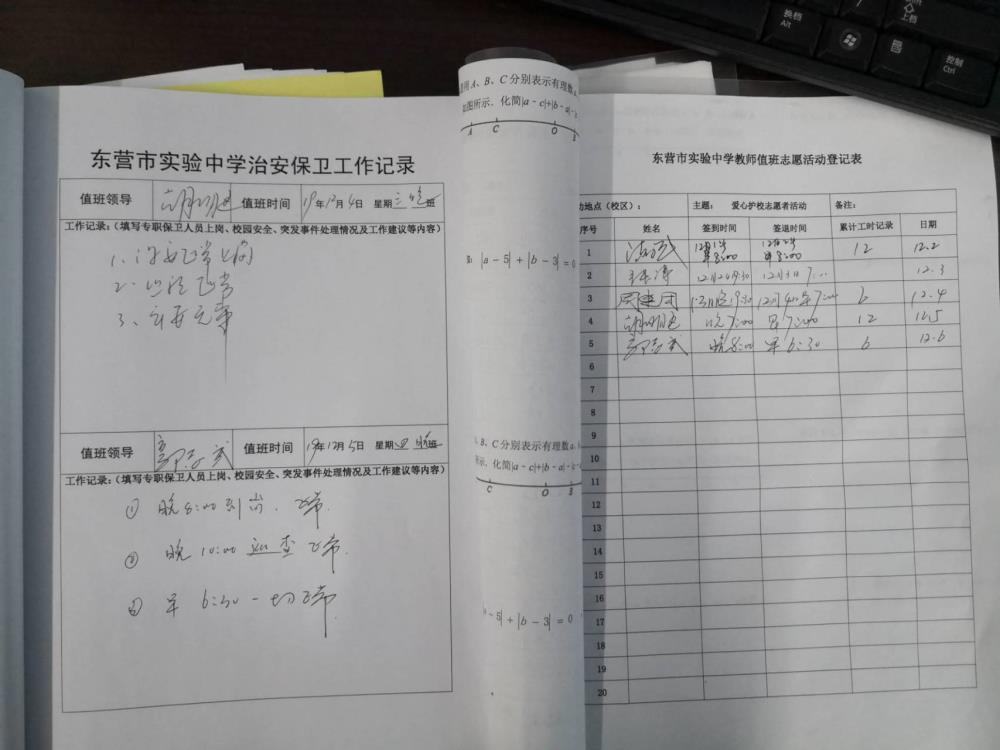 东营市实验中学治安保卫工作记录
值班领导 值班时间 19年12月4日 星期三晚班
工作记录:(填写专职保卫人员上岗、校园安全、突发事件处理情况及工作建议等内容)
1、保安正常上岗
2、巡逻正常
3、
值班领导 值班时间 19年12月5日 星期四晚班
工作记录:(填写专职保卫人员上岗、校园安全、突发事件处理情况及工作建议等内容)
① 晚8:00到岗. 正常.
② 晚10:00 巡查正常.
③ 早6:30一切正常
用A、B、C分别表示有理数a、
如图所示．化简|a-c|+|b-a|-
A C O B
|a-5|+|b-3|=0
、B、C分别表示有理数a、b
所示．化简|a-c|+|b-a|-
C O B
-5|+|b-3|=0
东营市实验中学教师值班志愿活动登记表
动地点（校区）： 主题： 爱心护校志愿者活动 备注：
序号 姓名 签到时间 签退时间 累计工时记录 日期
1 12 12.2
2 12月2日19:30 12月3日7:00 12.3
3 6 12.4
4 晚7:00 早7:00 12 12.5
5 晚8:00 早6:30 6 12.6
6
7
8
9
10
11
12
13
14
15
16
17
18
19
20
换档
Alt
上档
控制
Ctrl